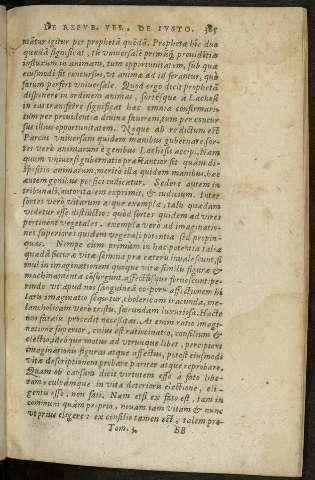 DE REPVB. VEL DE IVSTO. 385
mātur igitur per prophetā quēdā. Prophetæ hoc duo
quædā significat, tū vniuersale primūq; prouidētiæ
influxum in animam, tum opportunitatem, sub qua
eiusmodi sit concursus, vt anima ad id feratur, quò
fatum persert vniuersale. Quod ergo dicit prophetā
disponere in ordinem animas, sortésque à Lachesi
in eas transferre significat hæc omnia confirmari
tum per prouidētiæ diuinæ fauorem, tum per concur
sus illius opportunitatem. Neque ab re dictum est
Parcas vniuersum quidem manibus gubernare, sor-
tes verò animarum è genibus Lachesis accipi. Nam
quum vniuersi gubernatio præstantior sit quàm di-
spositio animarum, meritò illa quidem manibus, hæc
autem genibus perfici iudicatur. Sedere autem in
tribunali, autoritatem exprimit, & iudicium. Inter
sortes verò vitarum atque exempla, talis quædam
videtur esse distinctio: quòd sortes quidem ad vires
pertinent vegetales, exempla verò ad imaginatio-
nem superiori quidem vegetali potentiæ sed propin-
quas. Nempe eùm primùm in hac potentia talia
quædā fictioræ vitæ semina præ cæteris inualescunt, si
mul in imaginationem quoque vitæ similis figuræ &
machinamenta cōsurgunt, affectúsque formoscunt, per-
inde vt apud nos sanguineā corporis affectionem hi
laris imaginatio sequitur, cholericam iracunda, me-
lancholicam verò tristis, sæcundam luxuriosa. Hacte
nos fatalis processit necessitas. At enim ratio imagi-
natione superior, cuius est ratiocinatio, consilium &
electio, ideóque motus ad vtrunque liber, perceptas
imaginationis figuras atque affectus, potest eiusmodi
vitæ descriptionem probare pariter atque reprobare.
Quam ob causam dicit virtutem esse à fato libe-
ram, culpámque in vita deterioris electione, eli-
gentis esse, non fati. Nam etsi ex fato est, tam in
communi quàm propria, nouam tam vitam & nunc
vt prius eligere: ex consilio tamen est, talem præ-
Tom. 4. BB